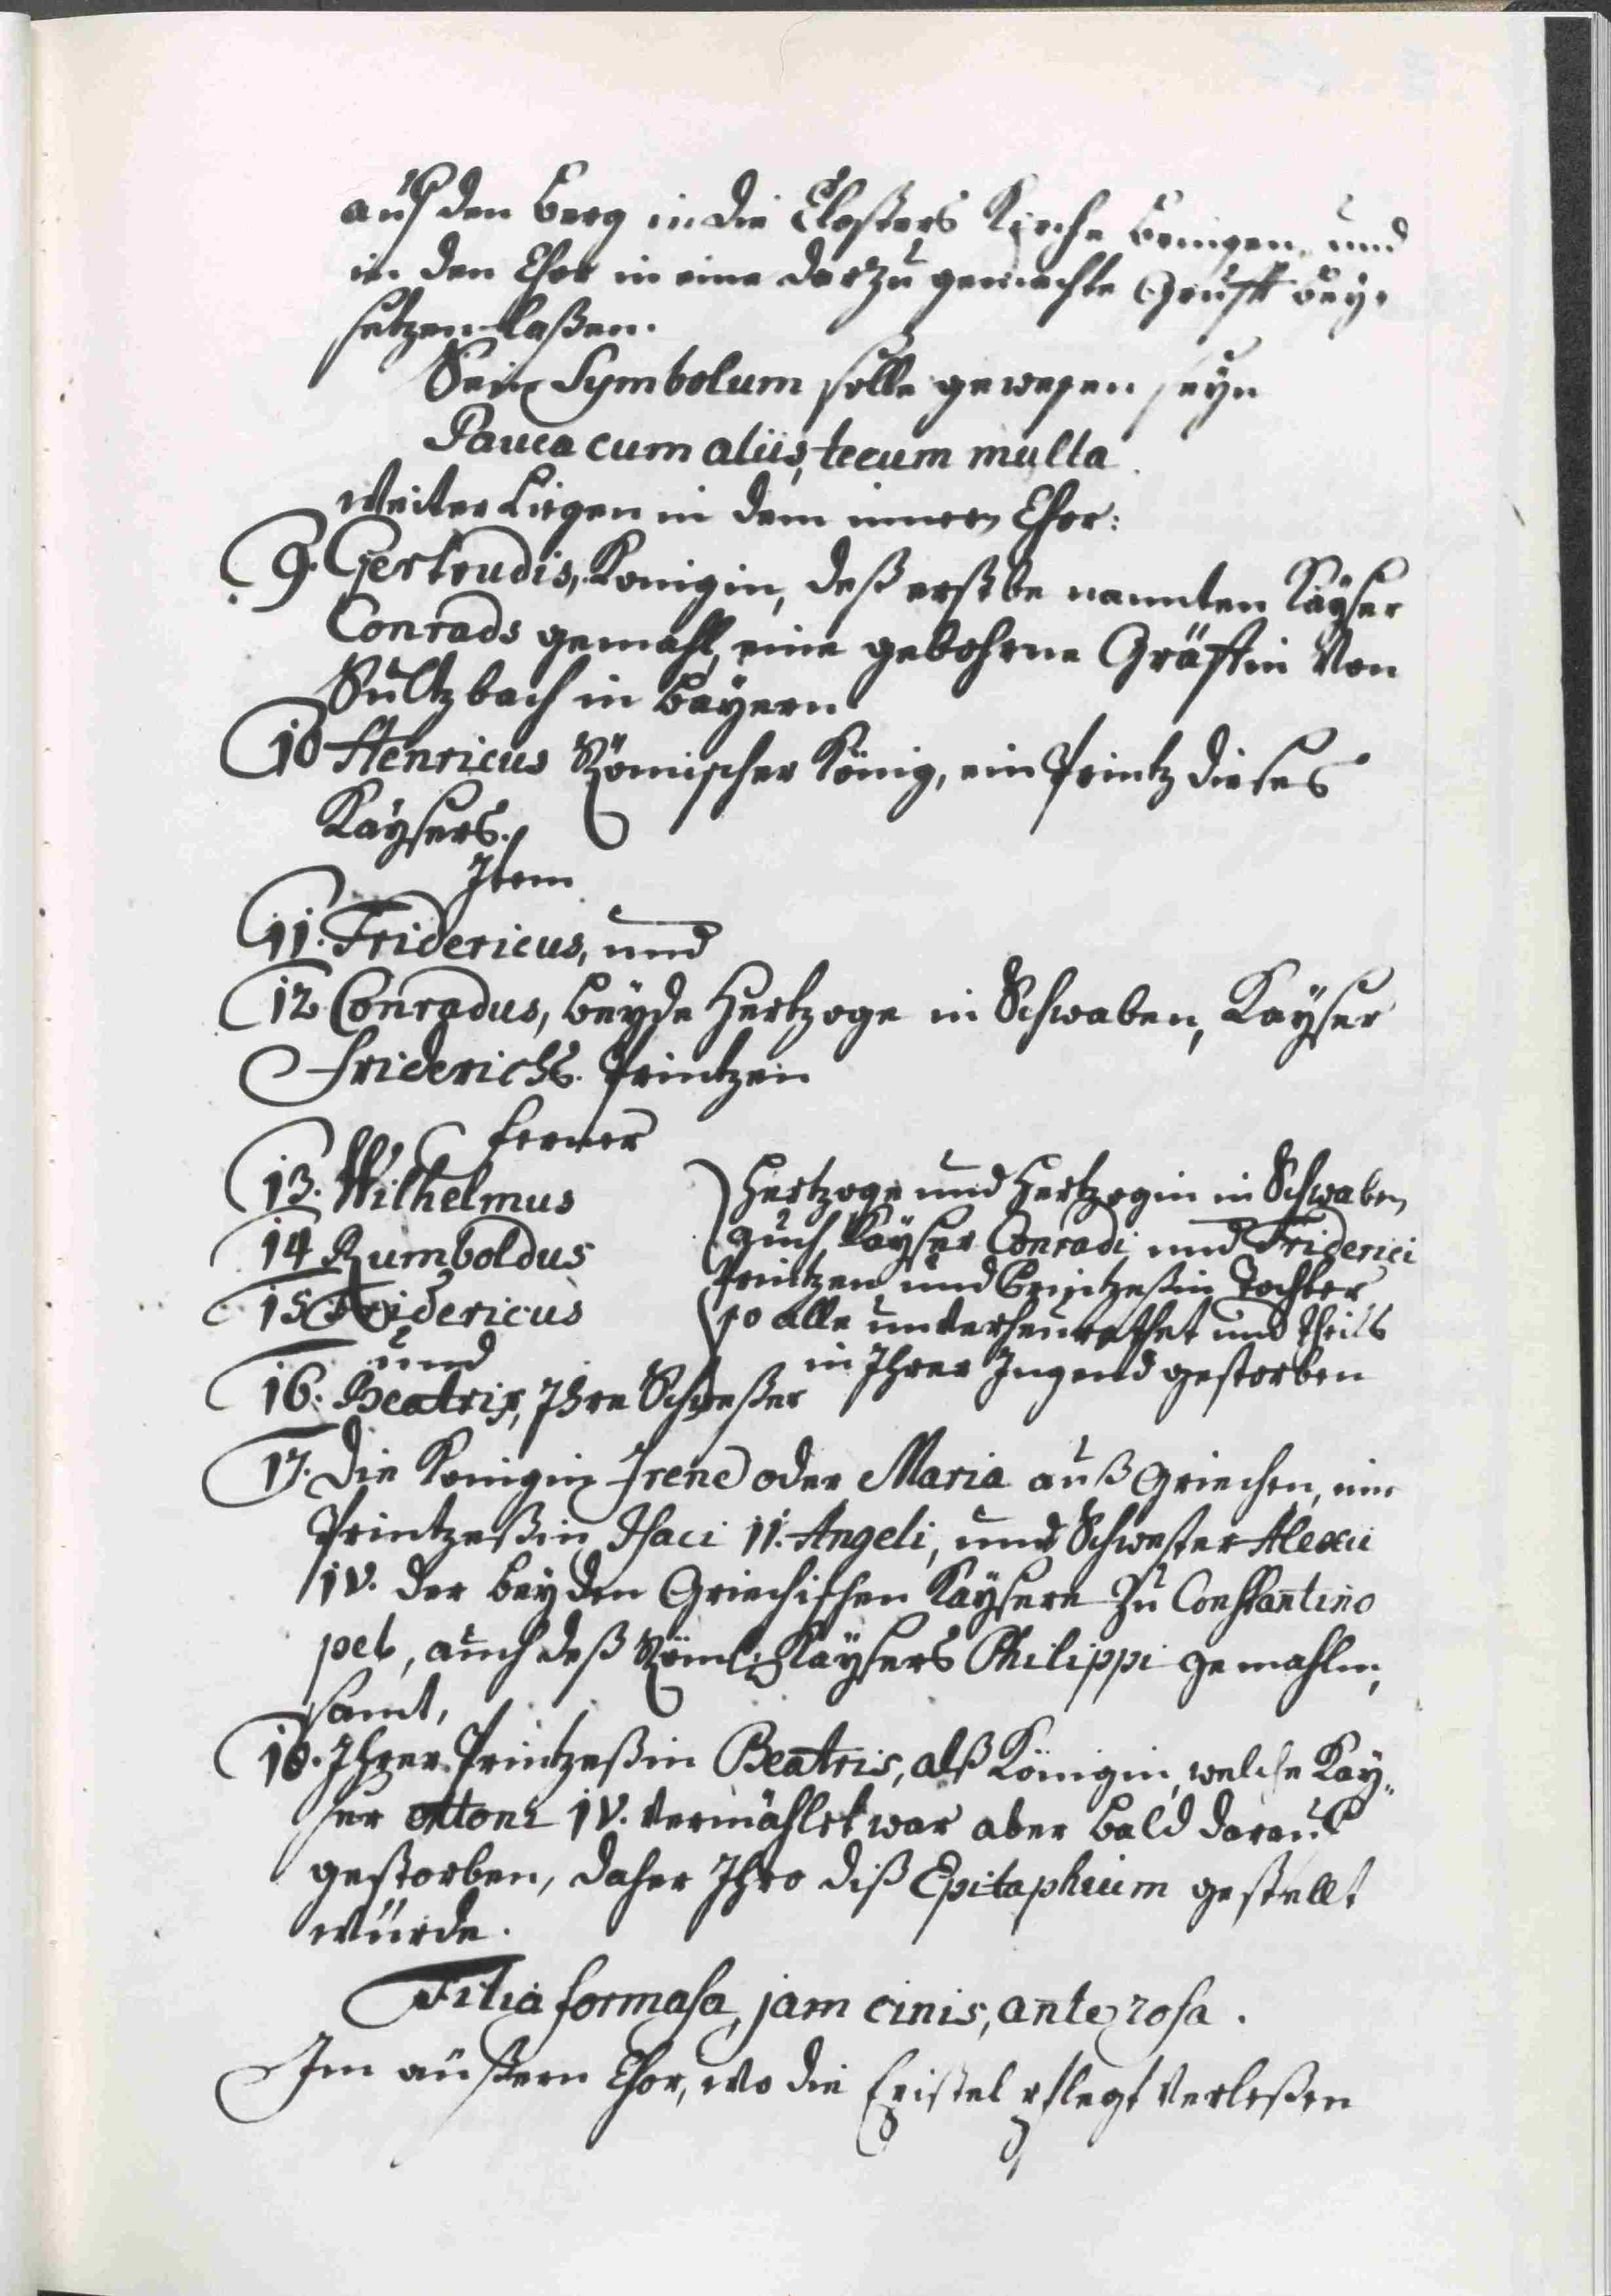 auf den Berg in die Closters Kirche bringen, und
in den Chor in eine darzu gemachte Grufft bey-
setzen laßen.
Sein Symbolum solle gewesen seyn
Pauca cum aliis, tecum multa.
Weiter Liegen in dem innern Chor:
9. Gertrudis, Konigin, deß erst be nannten Kaÿser
Conrads gemahl, eine gebohrne Gräffin Von
Sultzbach in Bayern
10 Henricus Römischer König, ein Printz dieses
Kaÿsers.
Item
11. Fridericus, und
12. Conradus, beÿde Hertzoge in Schwaben, Kaÿser
Friderichs. Printzen
ferner
13. Wilhelmus
14 Rumboldus
15 Fridericus
und
16. Beatrix, Ihre Schweßter
Hertzoge und Hertzogin in Schwaben
auch Kaÿser Conradi und Friderici
Printzen und Printzeßin Tochter
so alle unverheurathet und theils
in Ihrer Jugend gestorben
17. Die Konigin Irene oder Maria auß Griechen, ein
Printzeßin Isaci II. Angeli, und Schwester Alexii
IV. der beyden Griechischen Kaÿsere zu Constantino
pel, auch deß Röml: Kaÿsers Philippi gemahlin,
samt,
18. Ihrer Printzeßin Beatris, alß Königin, welche Kaÿ„
ser Ottoni IV. vermählet war aber bald darauf
gestorben, daher Ihro diß Epitaphium gestellt
würde.
Filia formasa, jam cinis, ante rosa.
Im außern Chor, wo die Epistel pflegt verleßen